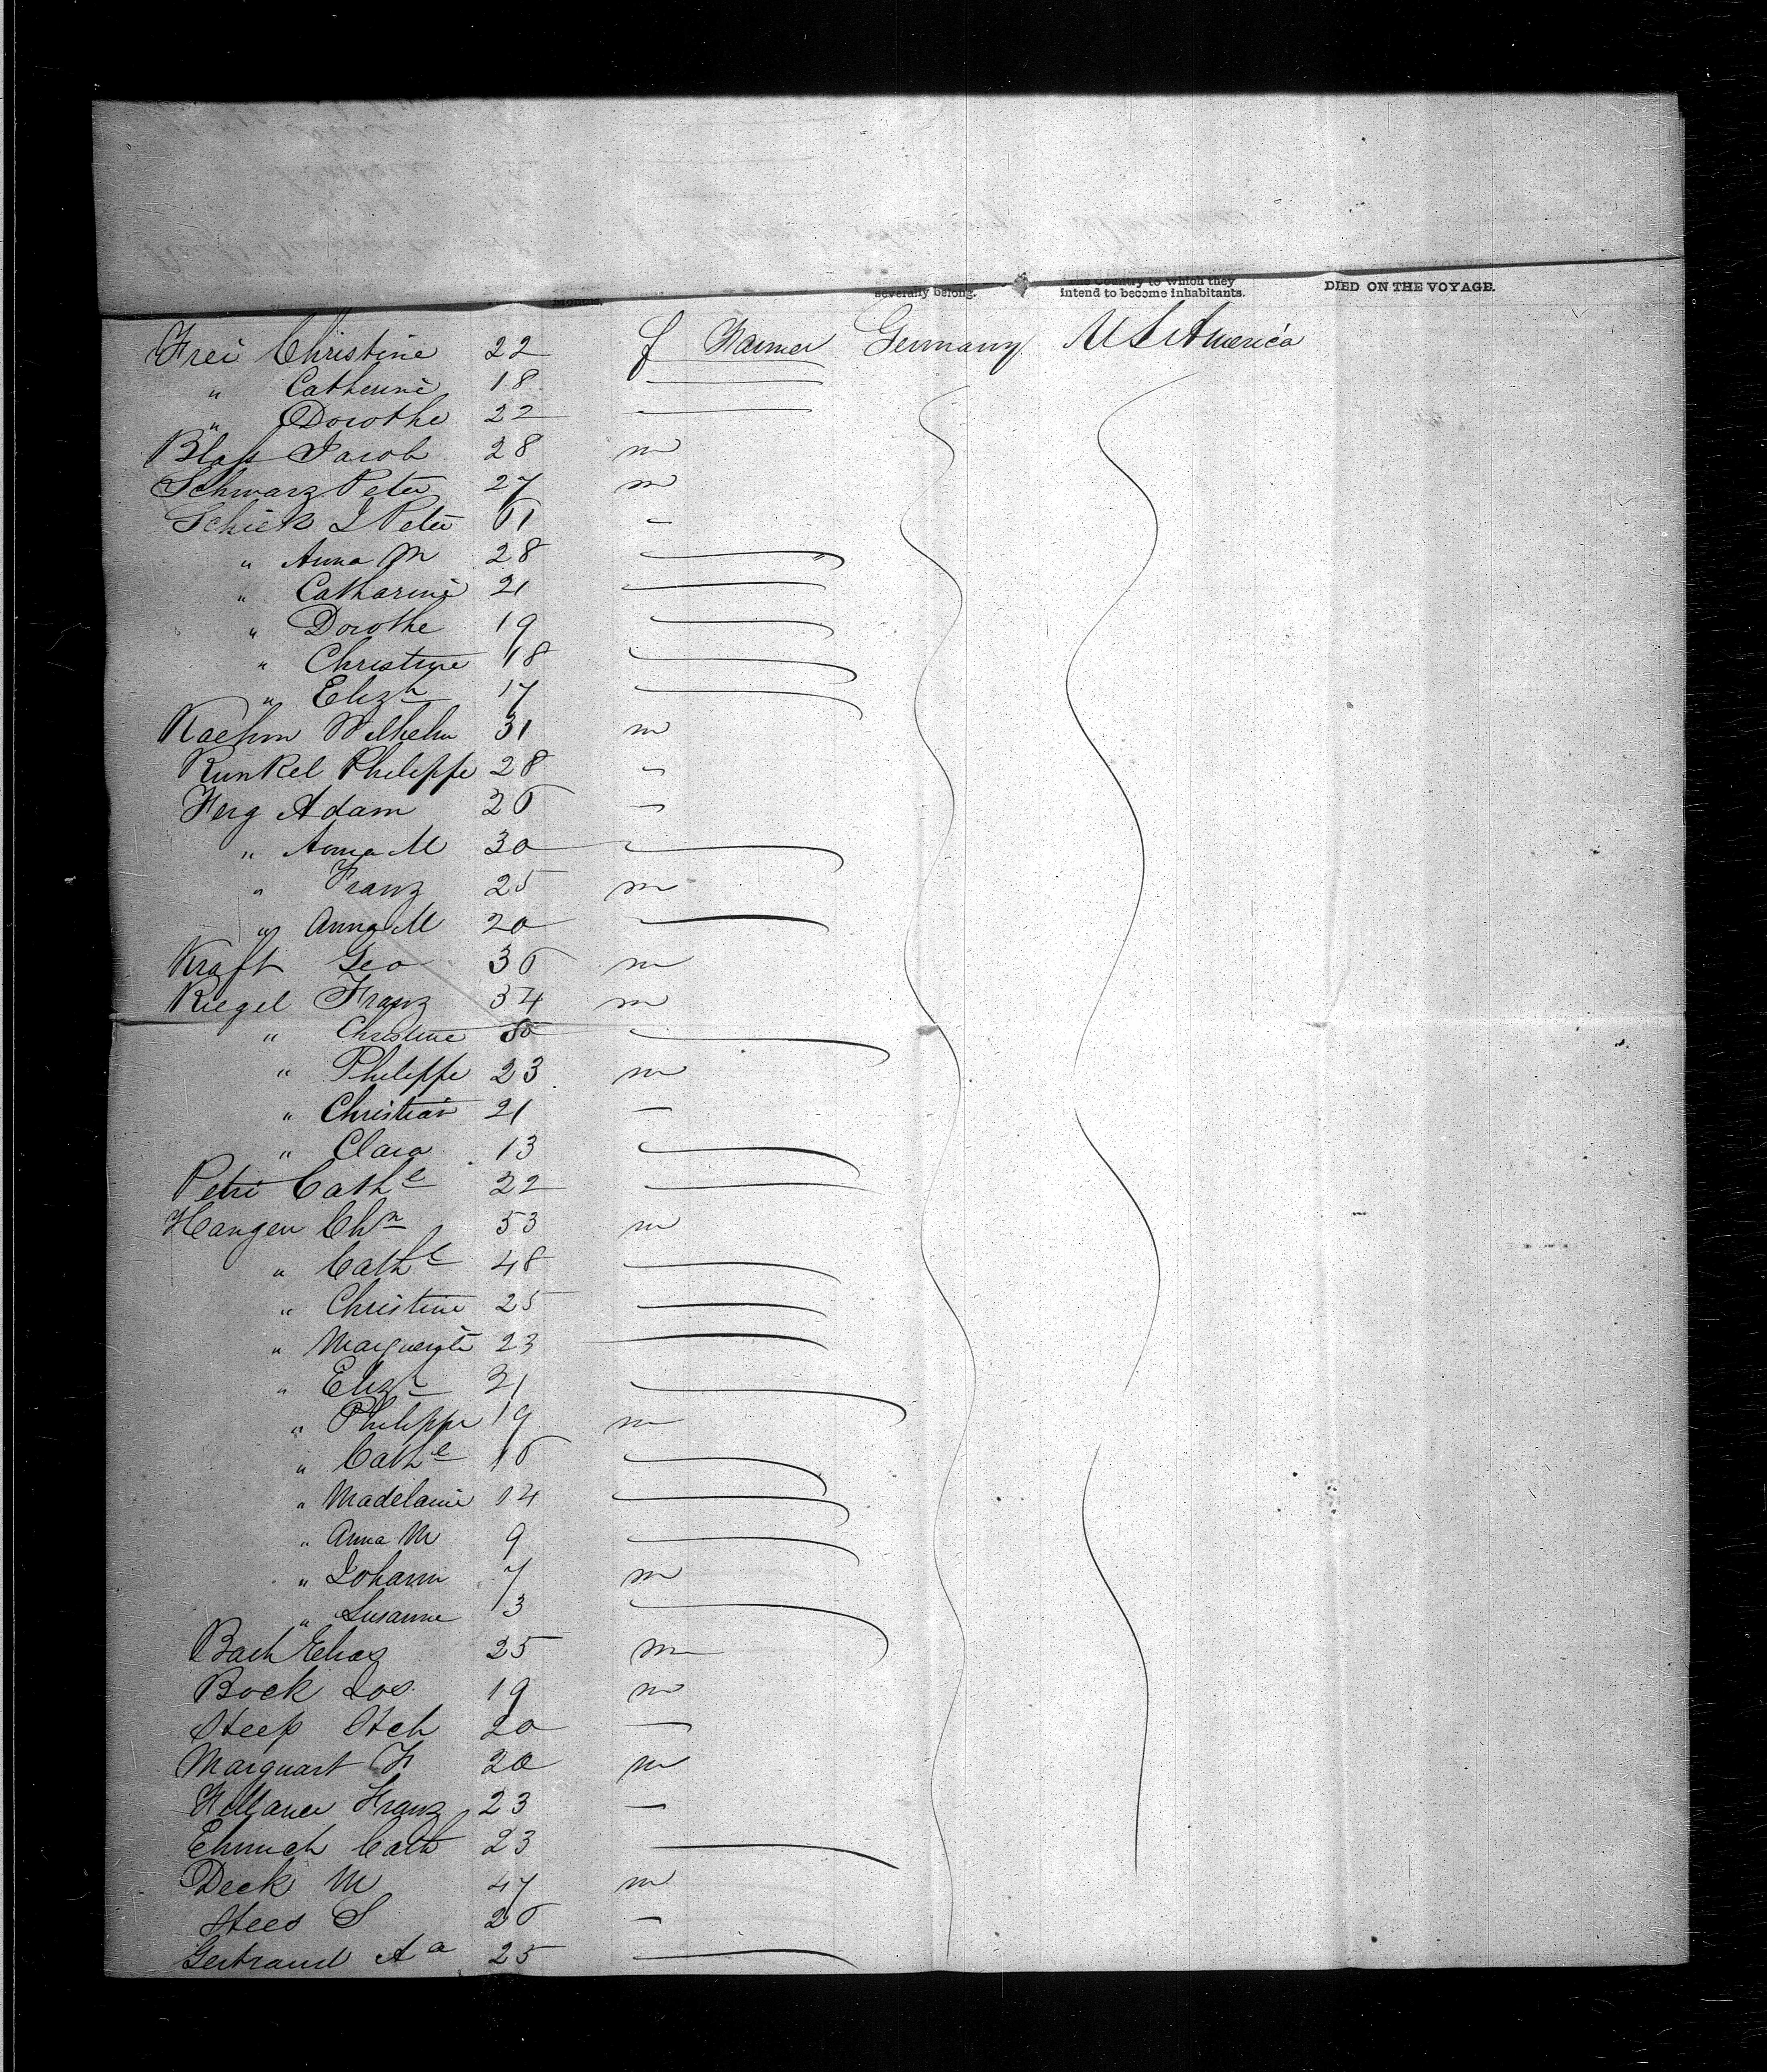 severally belong.
The Country to which they
intend to become inhabitants.
DIED ON THE VOYAGE.
Frei Christine 22 f Farmer Germany U S America
" Catherine 18
" Dorothe 22
Blass Jacob 28 m
Schwarz Peter 27 m
Schick J Peter 61
" Anna M 28
" Catharine 21
" Dorothe 19
" Christine 18
" Elizh 17
Kaehm Wilhelm 31 m
Runkel Philippe 28
Ferg Adam 26
" Anna M 30
" Franz 25 m
" Anna M 20
Kraft Geo 36 m
Riegel Franz 34 m
" Christine
" Philippe 23 m
" Christian 21
" Clara 13
Petri Cathe 22
Hangen Chn 53 m
" Cathe 48
" Christine 25
" Marguerite 23
" Elizh 21
" Philippe 19 m
" Cathe 16
" Madelaine 14
" Anna M 9
" Johann 7 m
" Susanne 13
Bach Elias 25 m
Bock Jos. 19 m
Steep Steh 20
Marquart F 20 m
Franz 23
Cath 23
Deck M 47 m
Stees S 26
Gertraud Aa 25